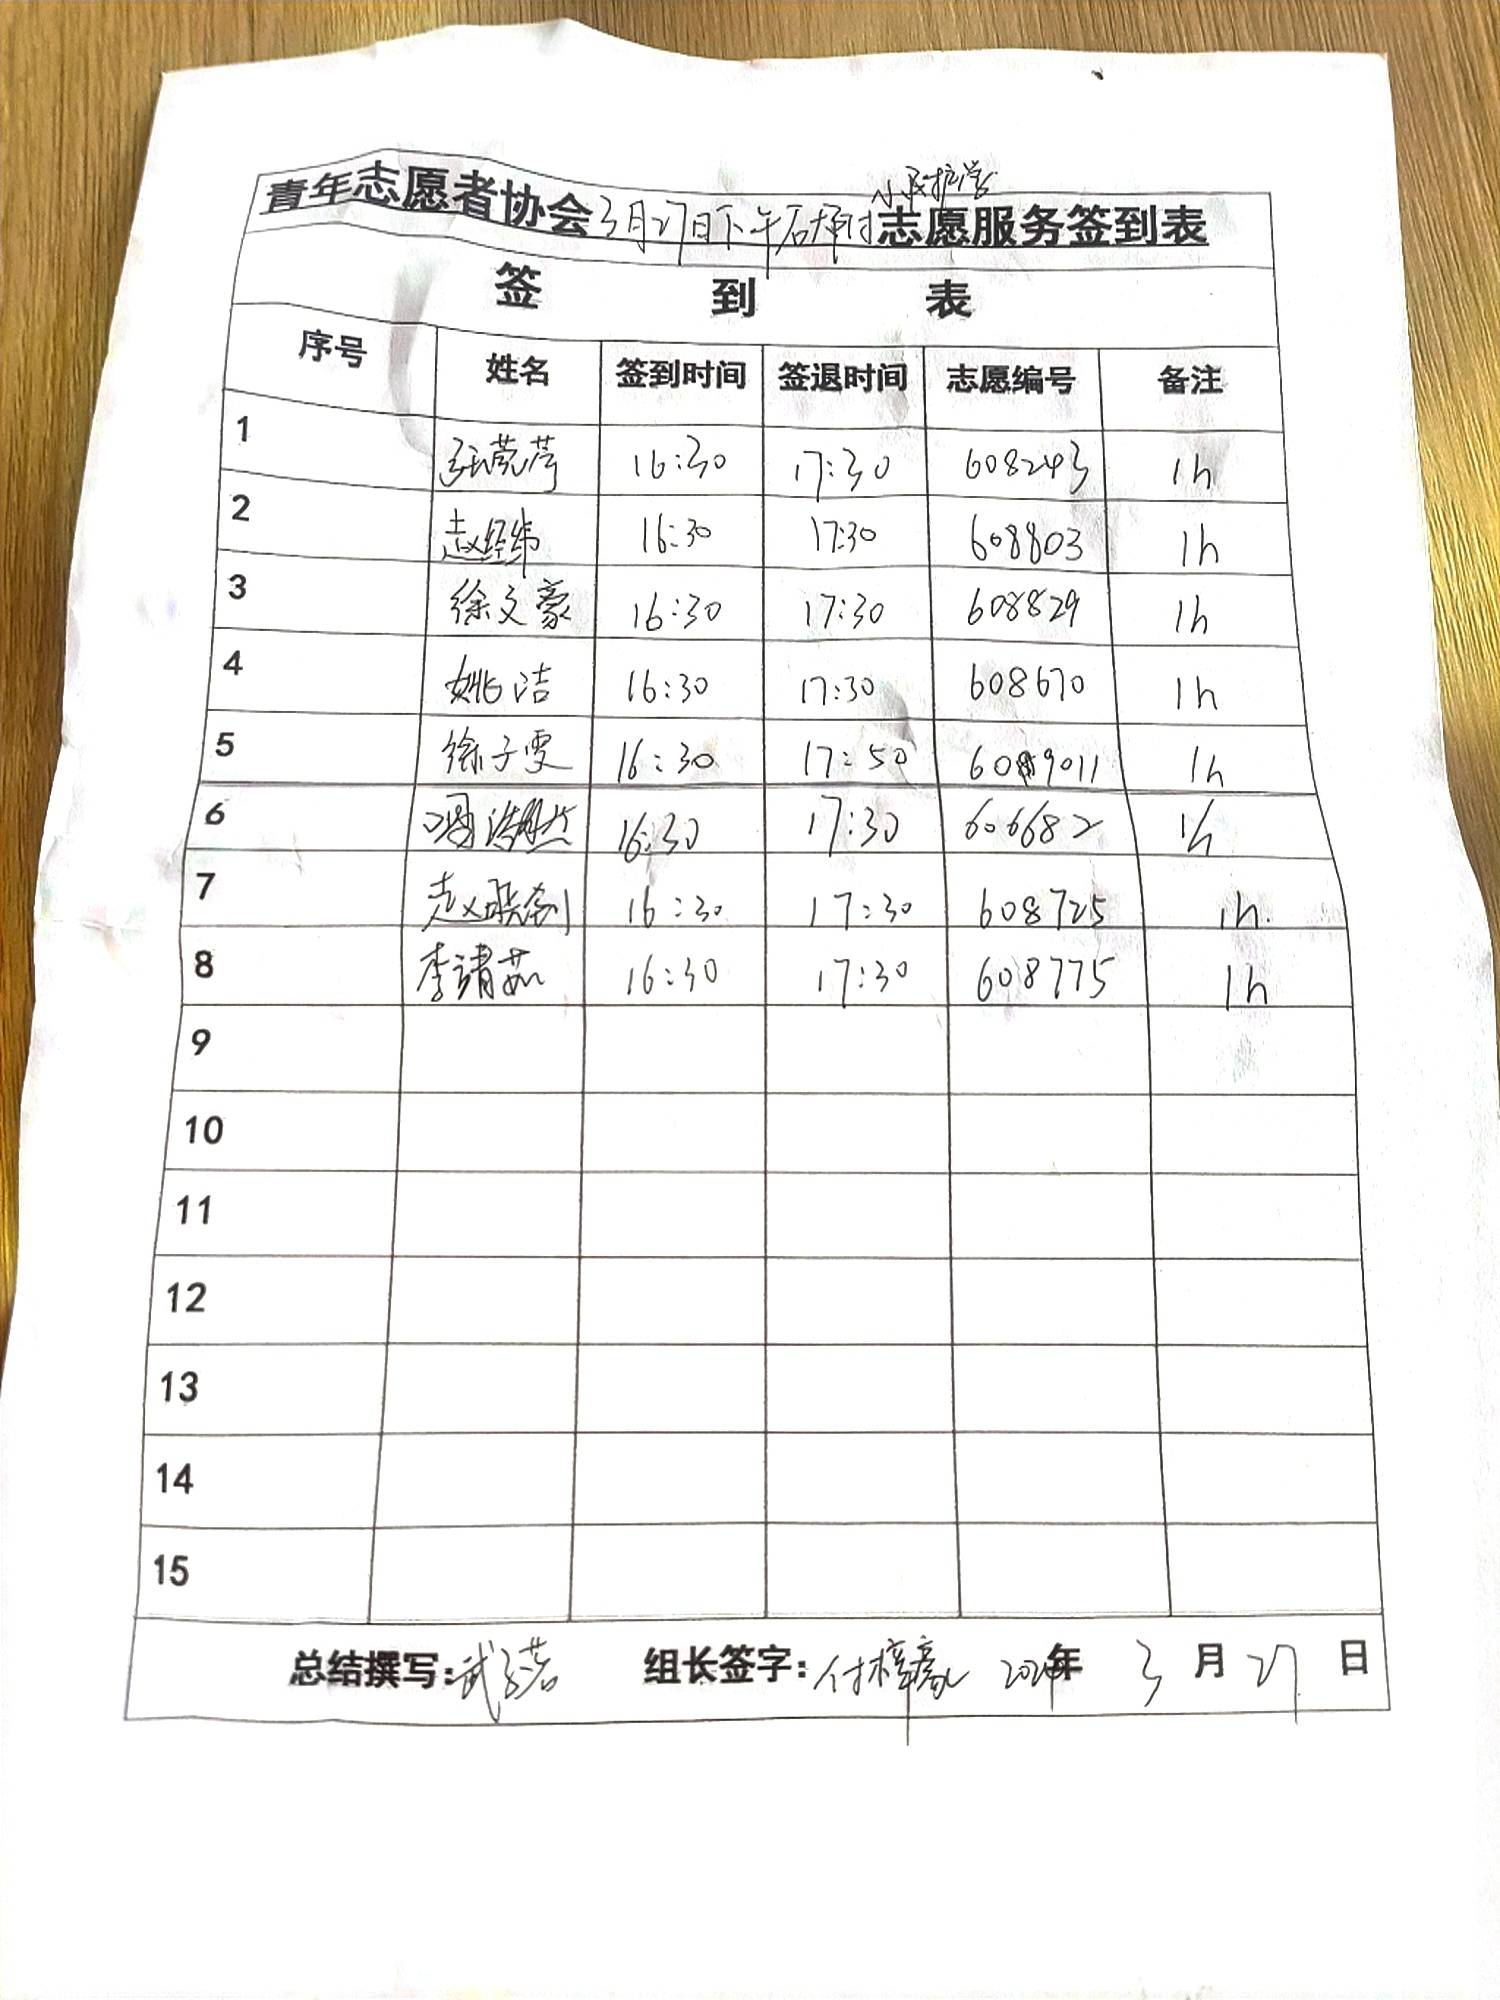 小学护学
青年志愿者协会3月27日下午石村志愿服务签到表
签 到 表
序号 姓名 签到时间 签退时间 志愿编号 备注
1 16:30 17:30 608243 1h
2 赵经纬 16:30 17:30 608803 1h
3 徐文豪 16:30 17:30 608829 1h
4 姚洁 16:30 17:30 608670 1h
5 徐子雯 16:30 17:50 6089011 1h
6 浩然 16:30 17:30 606682 1h
7 赵 16:30 17:30 608725 1h.
8 李靖茹 16:30 17:30 608775 1h
9
10
11
12
13
14
15
总结撰写:武子若 组长签字:付梓豪 2024年 3月27日